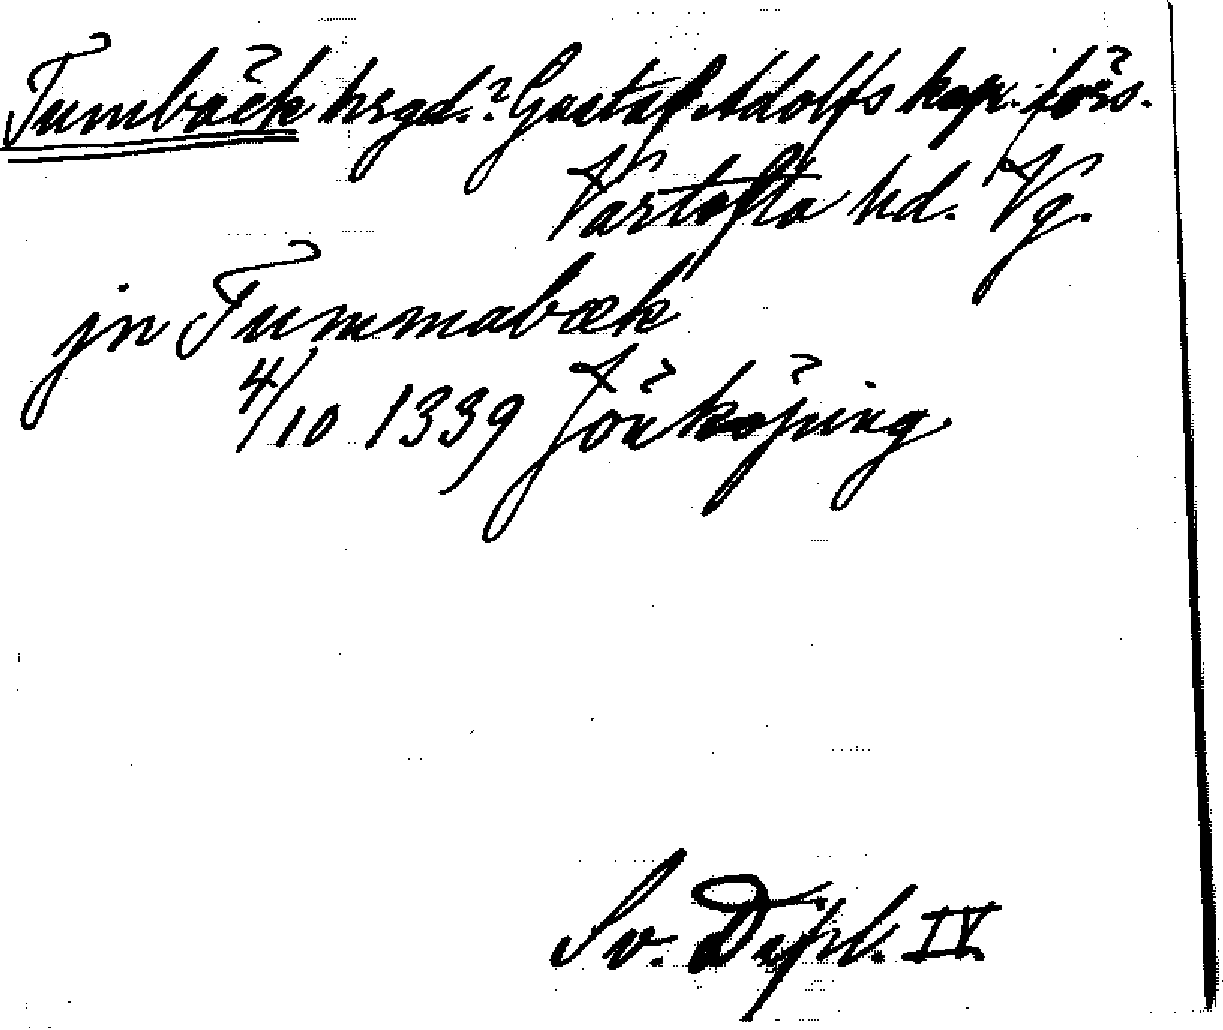 Tumbäck hrgd.? Gustaf Adolfs kap. förs.
Vartofta hd. Vg.
jn Tummabæk
4/10 1339 Jönköping
Sv. Dipl. IV